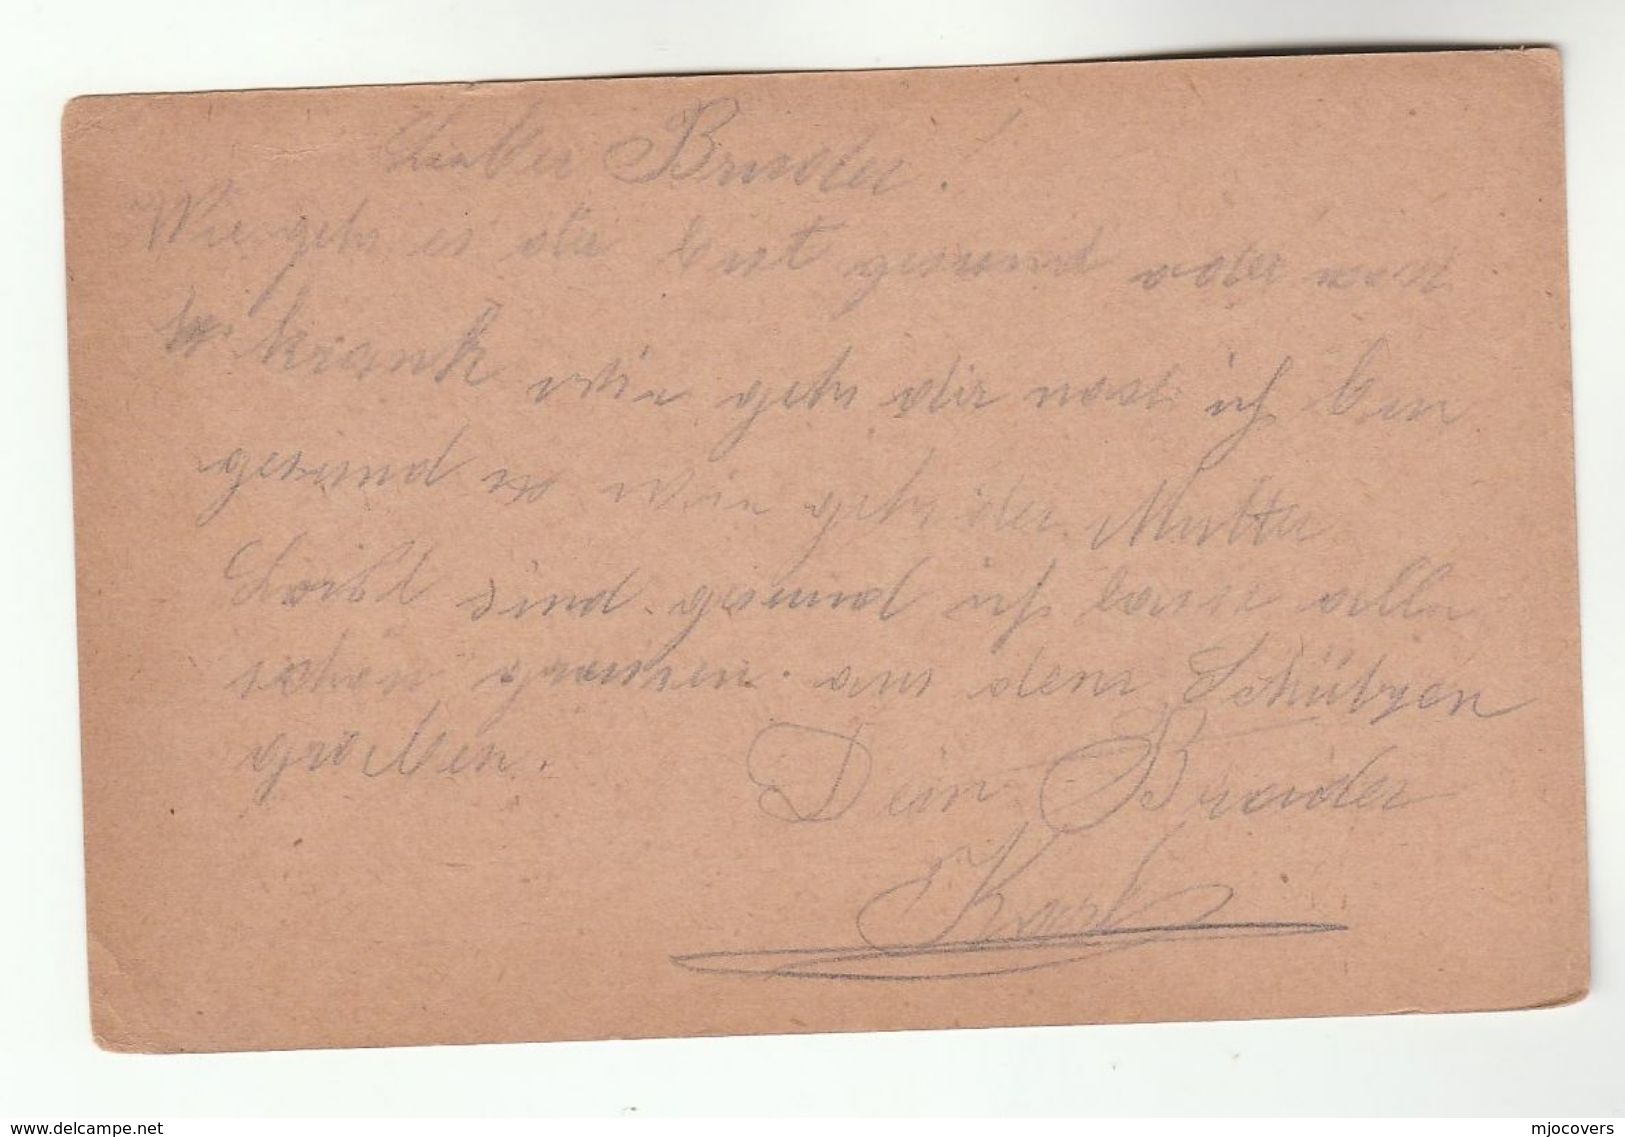 Lieber Bruder!
Wie gehts es dir bist gesund oder noch
krank wie gehts dir noch ich bin
gesund wie gehts der Mutter
sind gesund ich lasse alle
schön grüssen. aus dem Schützen
graben. Dein Bruder
Karl
www.delcampe.net
mjocovers